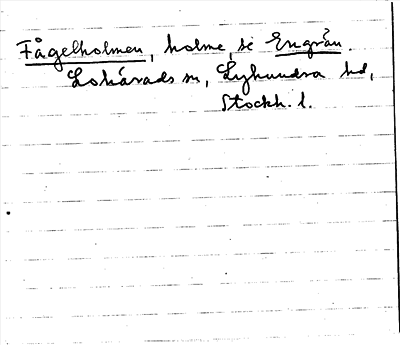 Fågelholmen, holme, se Engrån.
Lohärads sn, Lyhundra hd,
Stockh. l.